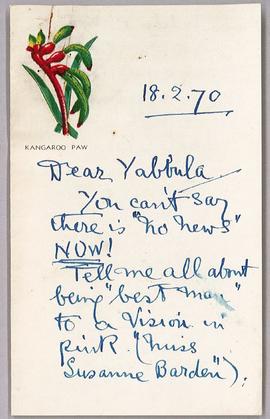 18.2.70
KANGAROO PAW
Dear Yabbula
You can't say
there is "no news"
NOW!
Tell me all about
being "best man"
to a Vision in
pink. ("Miss
Susanne Barden").